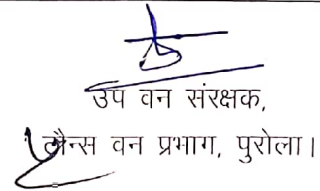 उप वन संरक्षक,
टौन्स वन प्रभाग, पुरोला।